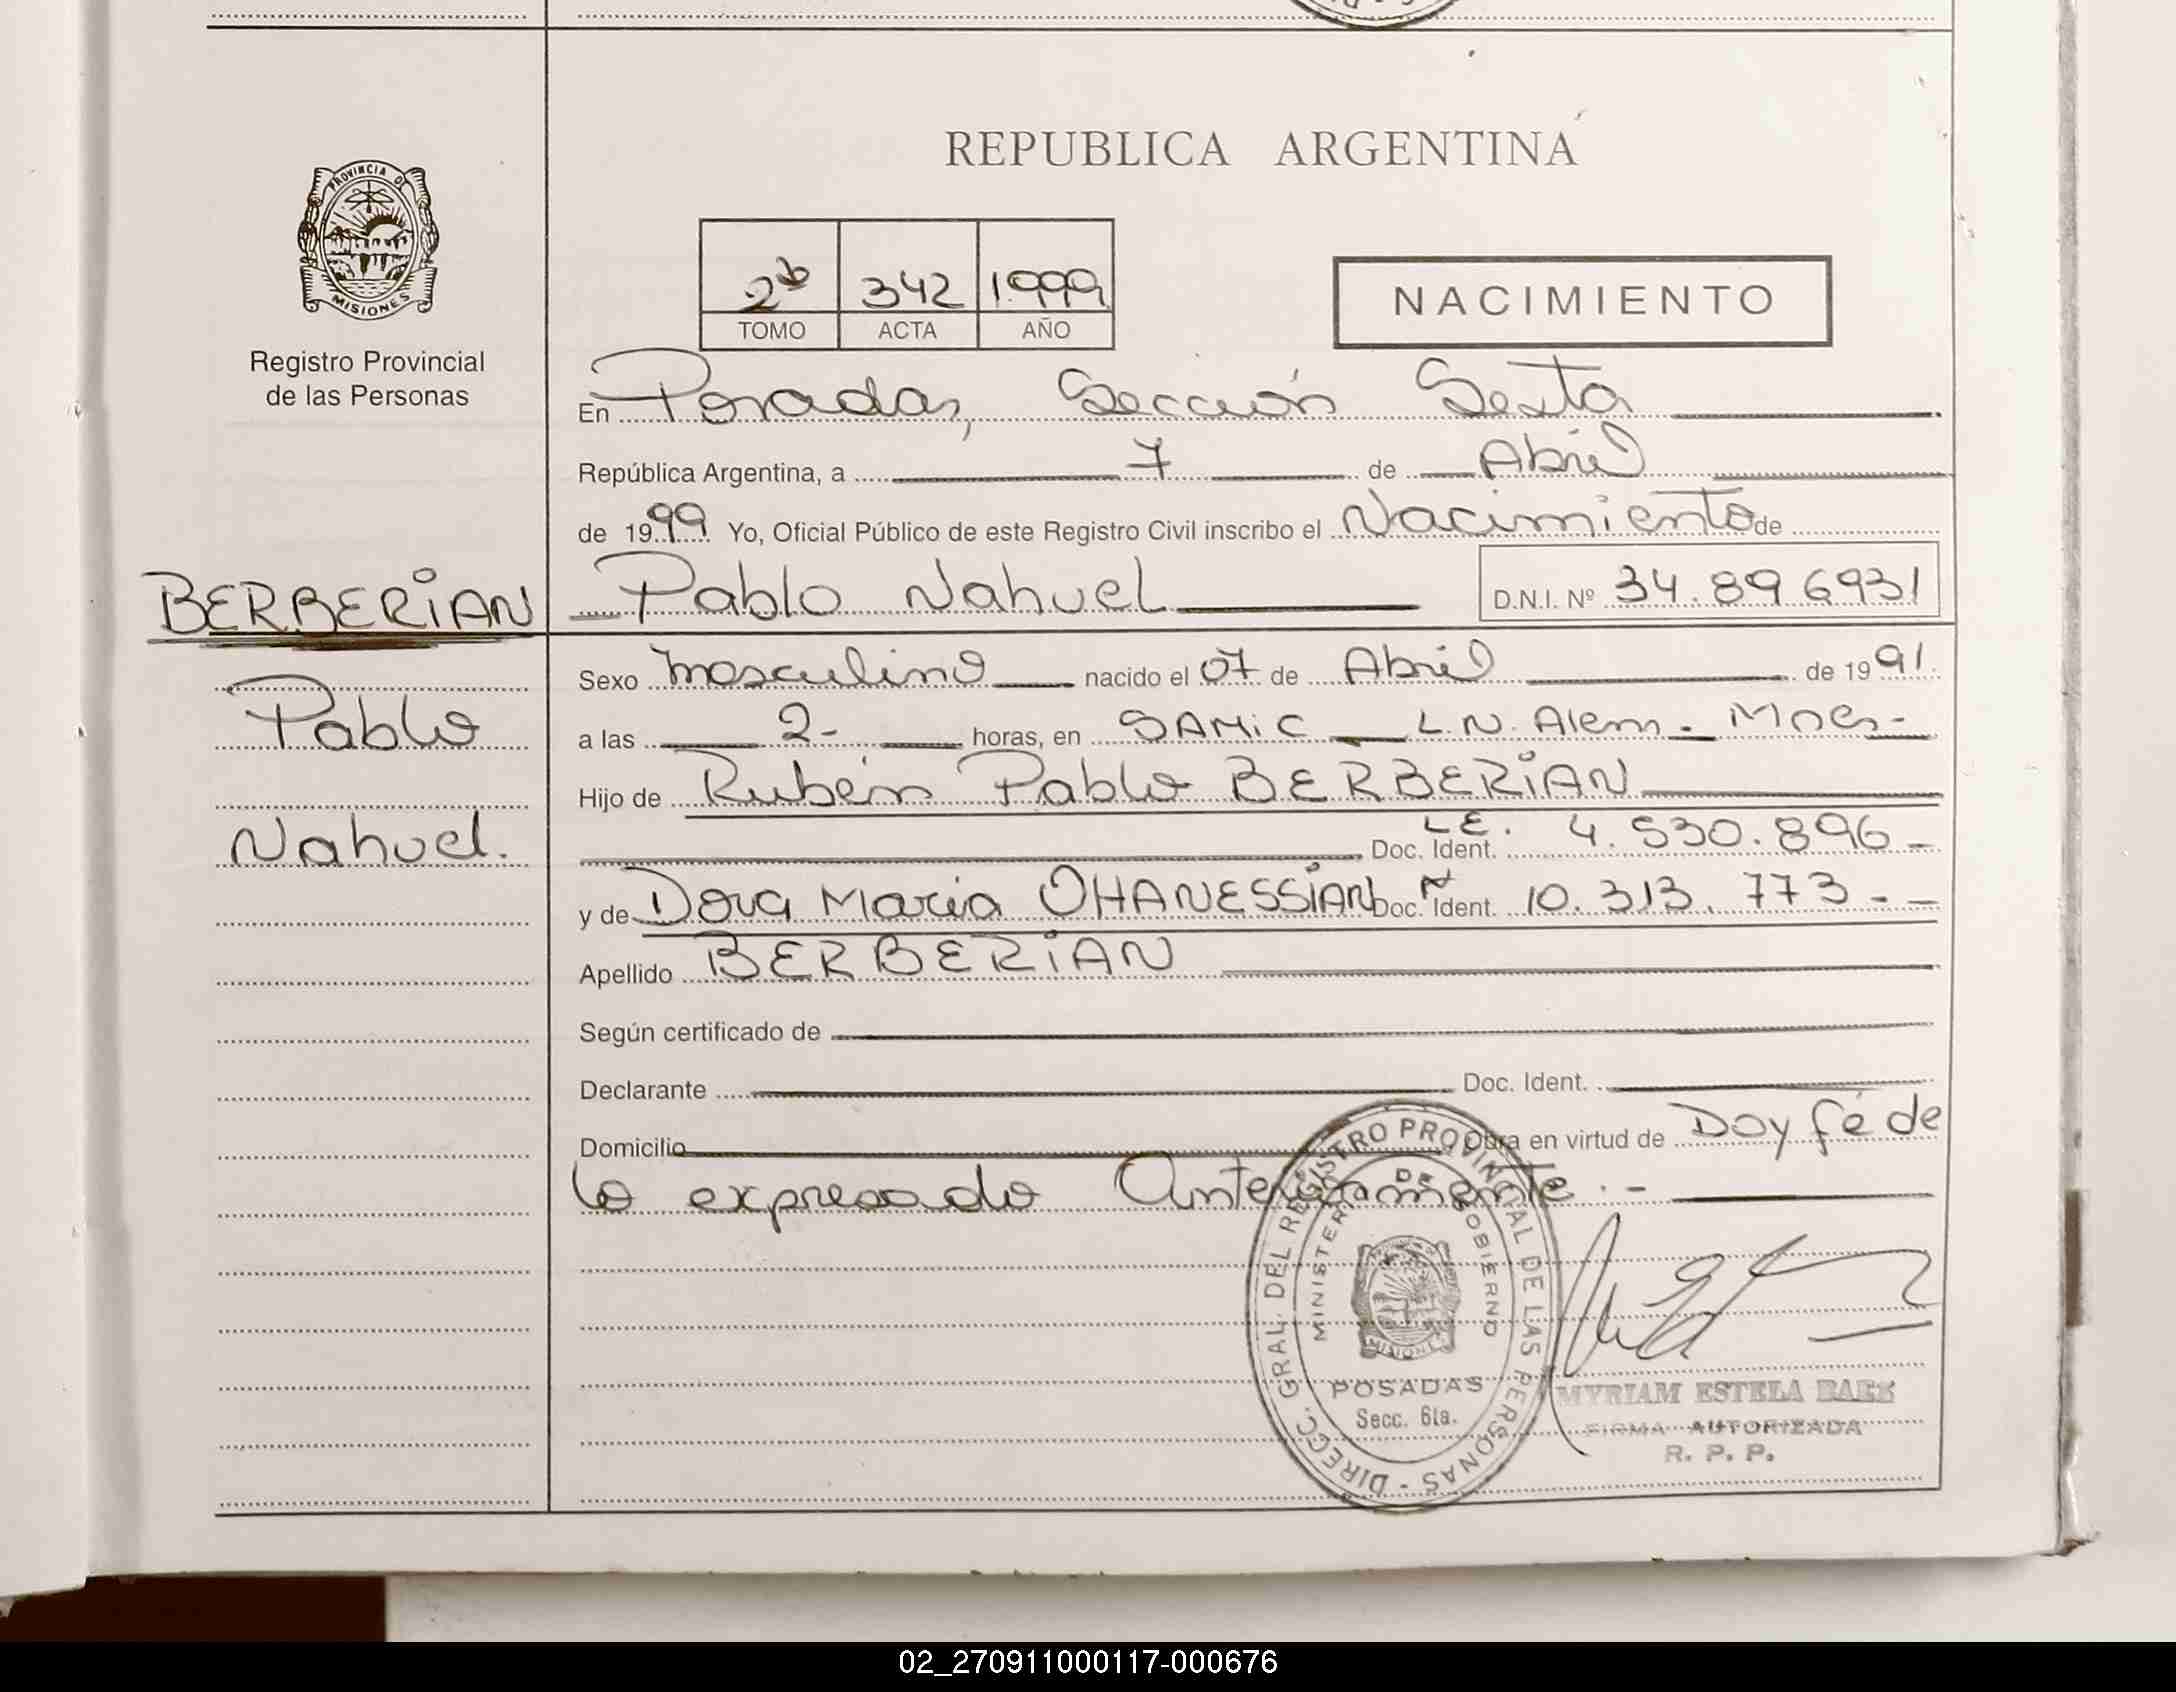 REPUBLICA ARGENTINA
PROVINCIA DE
MISIONES
Registro Provincial
de las Personas
2b 342 1.999
TOMO ACTA AÑO
NACIMIENTO
En Posadas, Sección Sexta
República Argentina, a 7 de Abril
de 1999 Yo, Oficial Público de este Registro Civil inscribo el Nacimiento de
BERBERIAN
Pablo Nahuel D.N.I. Nº 34.896931
Sexo masculino nacido el 07 de Abril de 1991.
Pablo
a las 2- horas, en SAMIC L.N. Alem - Mnes-
Hijo de Rubén Pablo BERBERIAN
Nahuel.
L.E.
Doc. Ident. 4.530.896 -
y de Dora Maria OHANESSIAN Doc. Ident. 10.313.773 - -
Apellido BERBERIAN
Según certificado de
Declarante Doc. Ident.
Domicilio Obra en virtud de Doy fé de
lo expresado Anteriormente . -
DIRECC. GRAL. DEL REGISTRO PROVINCIAL DE LAS PERSONAS -
MINISTERIO DE GOBIERNO
MISIONES
POSADAS
Secc. 6ta.
MYRIAM ESTELA BAEZ
FIRMA AUTORIZADA
R. P. P.
02_270911000117-000676